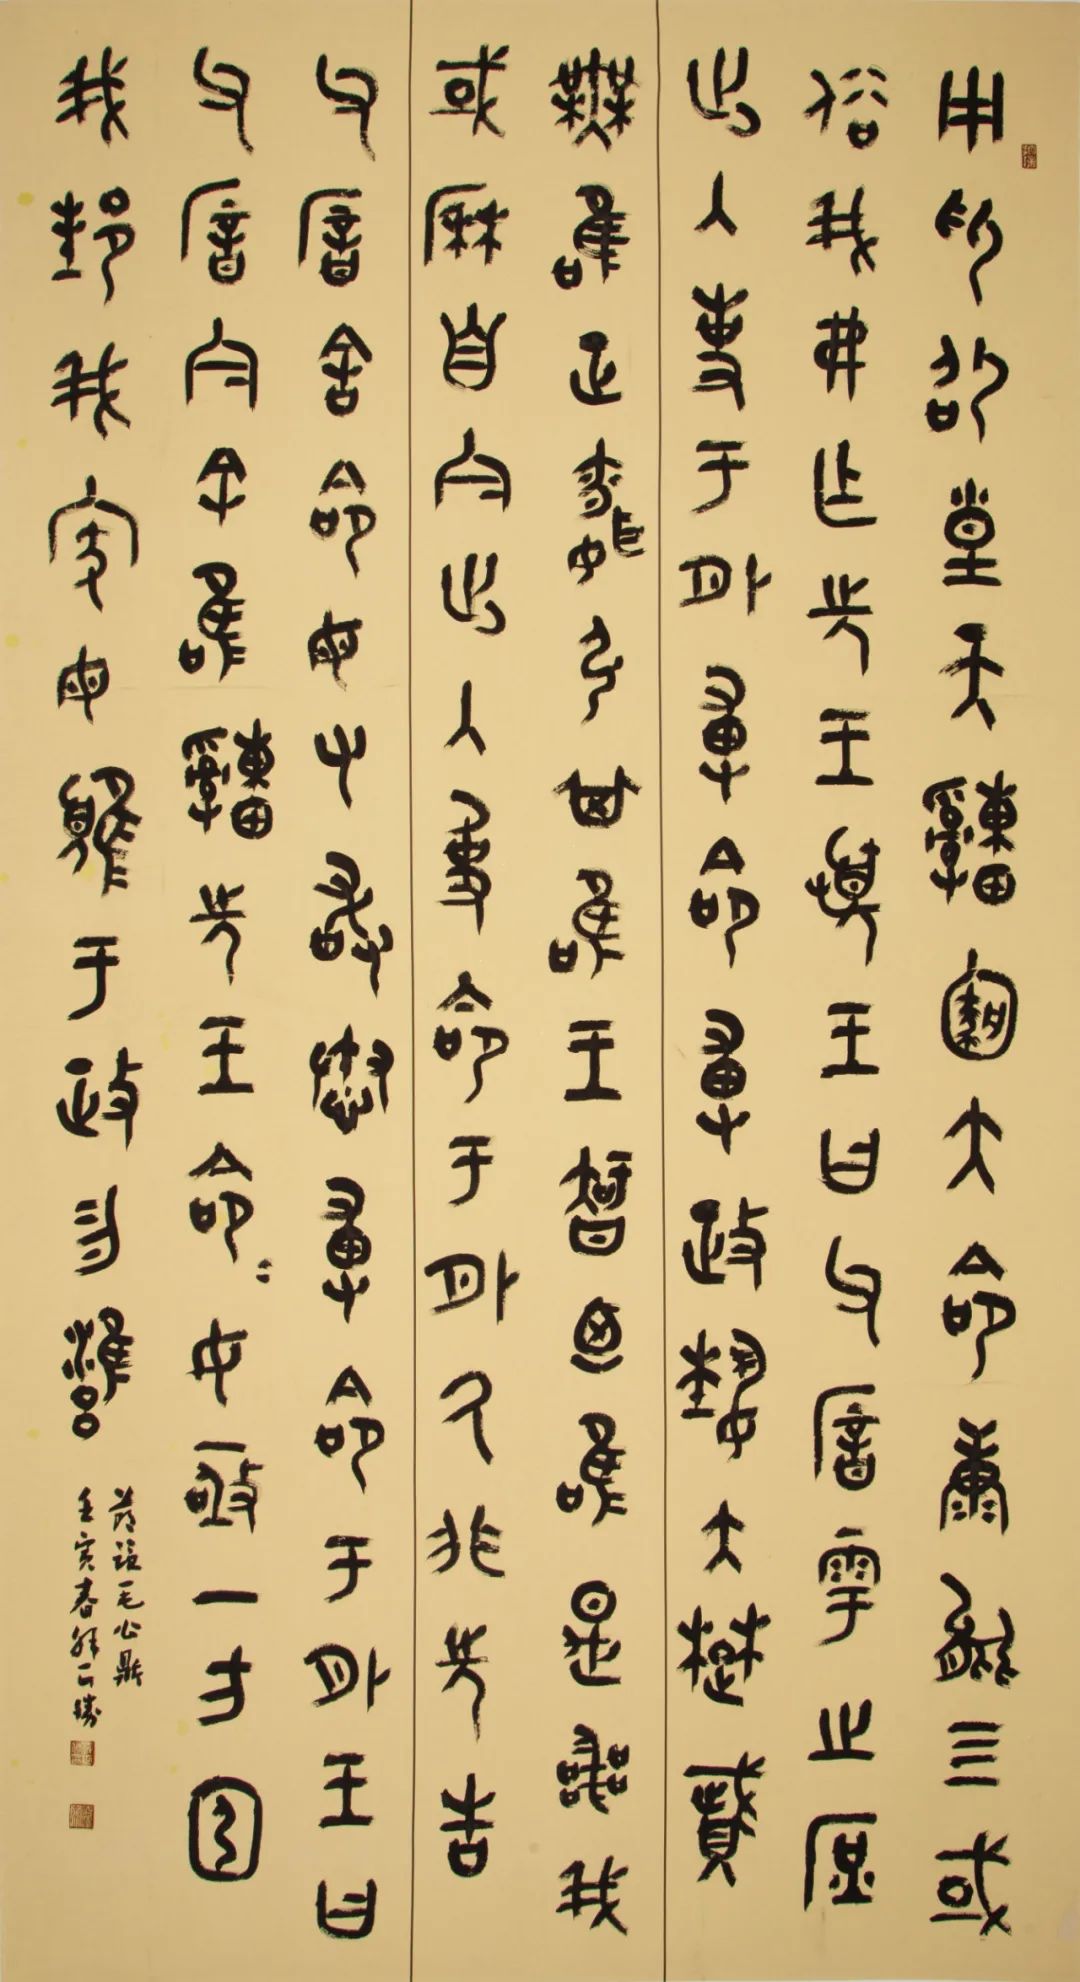 用卬卲皇天𤕌圝大命康能亖或
俗我弗乍先王憂王曰父厝雩之庶
出入事于外尃命尃政埶大楚賦
無唯正聞弘其唯王智迺唯是喪我
或厤自今出入事命于外氒非先告
父厝舍命毋又敢惷尃命于外王曰
父厝今余唯𤕌先王命=女亟一方
我邦我家毋顀于政勿雝
節臨毛公鼎
壬寅春勝